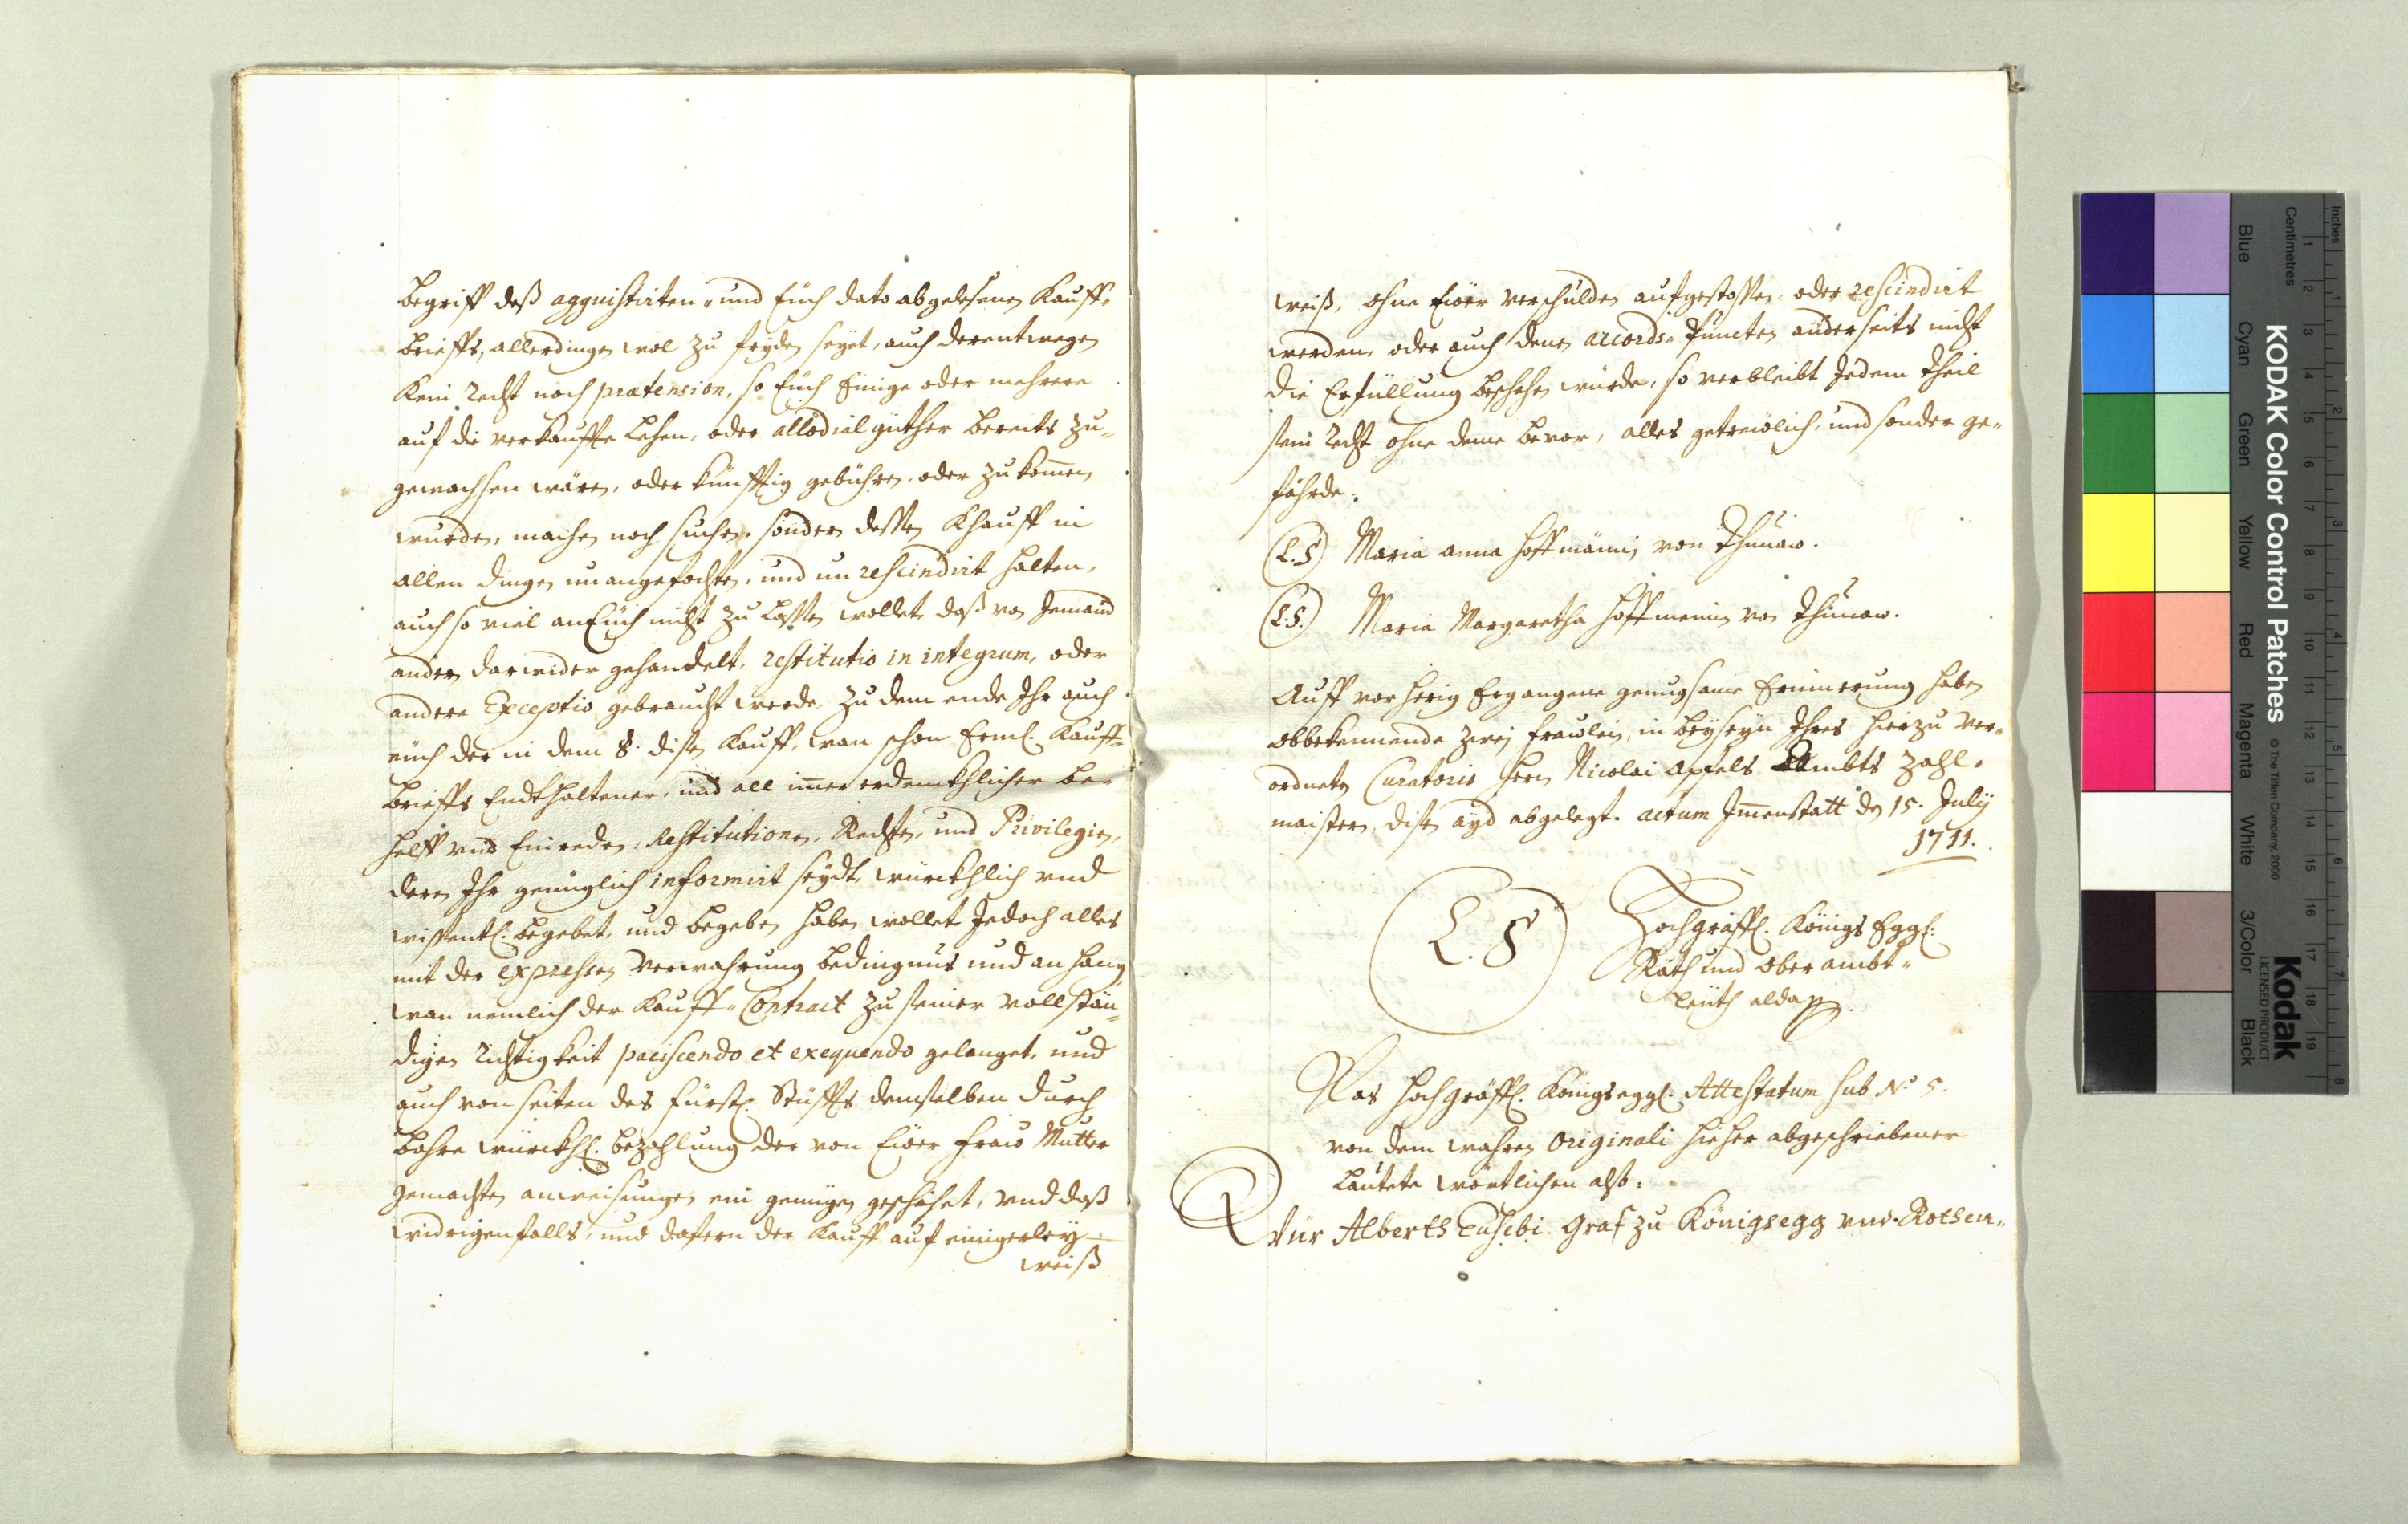 begriff deß acquistirten, und Euch dato abgelesenen Kauff-
brieffs, allerdingen wol zu friden seyet, auch derentwegen
Kein Recht noch prætension, so Euch Einige oder mehrere
auf die verkauffte Lehen, oder allodial güther bereits zu-
gewachsen wären, oder künfftig gebühren, oder zukom̄en
wurden, machen noch suchen, sonder dessen Khauff in
allen dingen unangefochten, und un rescindirt halten,
auch so viel an Euch nicht zu lassen wollet, daß von Jemand
andern darwider gehandelt, restitutio in integrum, oder
andere Exceptio gebraucht werde, zu dem ende Ihr auch
euch der in dem §. disen Kauff, wan schon Erml. Kauff-
brieffs Endthaltener, und all im̄er erdenkhlicher be-
helff und Einreden, Restitutionen, Rechten, und Privilegien,
deren Ihr genuglich informirt seydt, würckhlich und
wissentl. begebet, und begeben haben wollet Jedoch alles
mit der expressen Verwahrung bedingnus und anhang,
wan nemlich der Kauff-Contract zu seiner vollstän-
digen Richtigkeit paciscendo et exequendo gelanget, und
auch von seiten des fürstl. Stüffts demselben durch
bahre würckhl. bezahlung der von Eüer Fraw Mutter
gemachten anweisungen ein genügen geschihet, und daß
widrigenfalls, und dafern der Kauff auf einigerley
weiß
weiß, ohne Eüer verschulden aufgestossen, oder rescindirt
werden, oder auch denen accords-Puncten anderseits nicht
die Erfüllung beschehen wurde, so verbleibt Jedem theil
sein Recht ohne deme bevor, alles getreülich, und sonder ge-
fährde.
(L.S) Maria Anna Hoffmännin von Thunaw.
(L.S.) Maria Margaretha Hoffmenin von Thunaw.
Auff vorherig Ergangene genugsame Erinnerung haben
obbekennende zwej Fraulein, in beyseyn Ihres hierzu ver-
ordneten Curatoris Herrn Nicolai Apfels Ambts Zahl-
maistern, disen ayd abgelegt. Actum Im̄enstatt den 15. July
1711.
L. S
Hochgräffl. Königs Eggl:
Räth und ober ambt-
leüth alda.
Das Hochgräffl. Königseggl. Attestatum sub N.o 5.
von dem wahren Originali hieher abgeschriebener
lautete wörtlichen also.
Wür Alberth Eusebi Graf zu Königsegg und Rothen-
KODAK Color Control Patches © The Tiffen Company, 2000
Kodak
LICENSED PRODUCT
Inches
Centimetres
Blue
Cyan
Green
Yellow
Red
Magenta
White
3/Color
Black